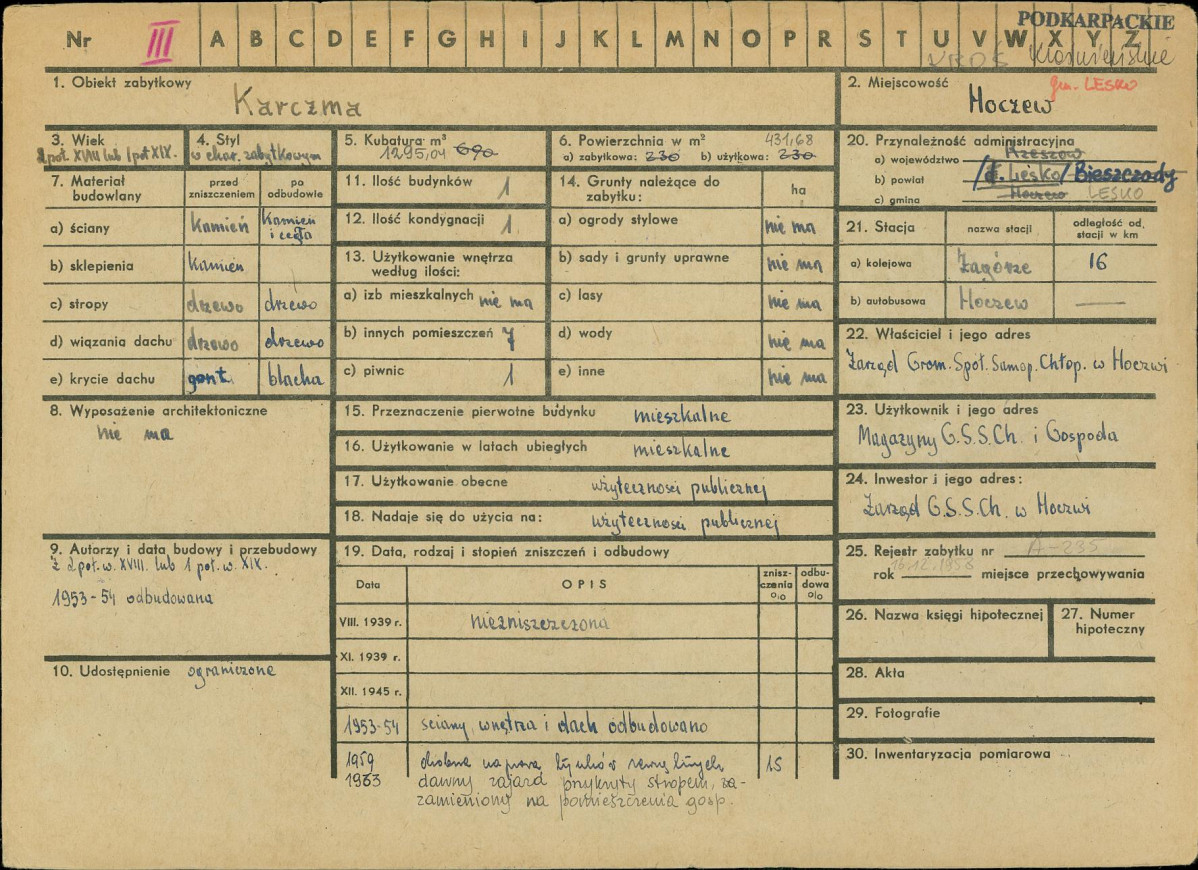 PODKARPACKIE
Nr III A B C D E F G H I J K L M N O P R S T U V W X Y Z
KROŚNIEŃSKIE
1. Obiekt zabytkowy
Karczma
2. Miejscowość
gm. LESKO
Hoczew
3. Wiek
2 poł. XVIII lub 1 poł XIX.
4. Styl
w char. zabytkowym
5. Kubatura m³
1295,04 690
6. Powierzchnia w m²
431,68
a) zabytkowa: 230 b) użytkowa: 230
20. Przynależność administracyjna
a) województwo Rzeszów
b) powiat /d. Lesko/ Bieszczady
c) gmina Hoczew LESKO
7. Materiał budowlany
przed zniszczeniem
po odbudowie
a) ściany Kamień Kamień i cegła
b) sklepienia Kamień
c) stropy drzewo drzewo
d) wiązania dachu drzewo drzewo
e) krycie dachu gont blacha
11. Ilość budynków 1
12. Ilość kondygnacji 1
13. Użytkowanie wnętrza według ilości:
a) izb mieszkalnych nie ma
b) innych pomieszczeń 7
c) piwnic 1
14. Grunty należące do zabytku:
ha
a) ogrody stylowe nie ma
b) sady i grunty uprawne nie ma
c) lasy nie ma
d) wody nie ma
e) inne nie ma
21. Stacja
nazwa stacji
odległość od stacji w km
a) kolejowa Zagórze 16
b) autobusowa Hoczew —
22. Właściciel i jego adres
Zarząd Grom. Spół. Samop. Chłop. w Hoczwi
8. Wyposażenie architektoniczne
nie ma
15. Przeznaczenie pierwotne budynku mieszkalne
16. Użytkowanie w latach ubiegłych mieszkalne
17. Użytkowanie obecne użyteczności publicznej
18. Nadaje się do użycia na: użyteczności publicznej
23. Użytkownik i jego adres
Magazyny G.S.S.Ch. i Gospoda
24. Inwestor i jego adres:
Zarząd G.S.S.Ch. w Hoczwi
9. Autorzy i data budowy i przebudowy
z 2 poł. w. XVIII. lub 1 poł. w. XIX.
1953-54 odbudowana
10. Udostępnienie ograniczone
19. Data, rodzaj i stopień zniszczeń i odbudowy
Data
OPIS
znisz-
czenia
o/o
odbu-
dowa
o/o
VIII. 1939 r. niezniszczona
XI. 1939 r.
XII. 1945 r.
1953-54 ściany, wnętrza i dach odbudowano
1959 drobna naprawa tynków zewnętrznych 15
1963 dawny zajazd przykryty stropem, za-
zamieniony na pomieszczenia gosp.
25. Rejestr zabytku nr A-235
rok 16.12.1958 miejsce przechowywania
26. Nazwa księgi hipotecznej
27. Numer hipoteczny
28. Akta
29. Fotografie
30. Inwentaryzacja pomiarowa